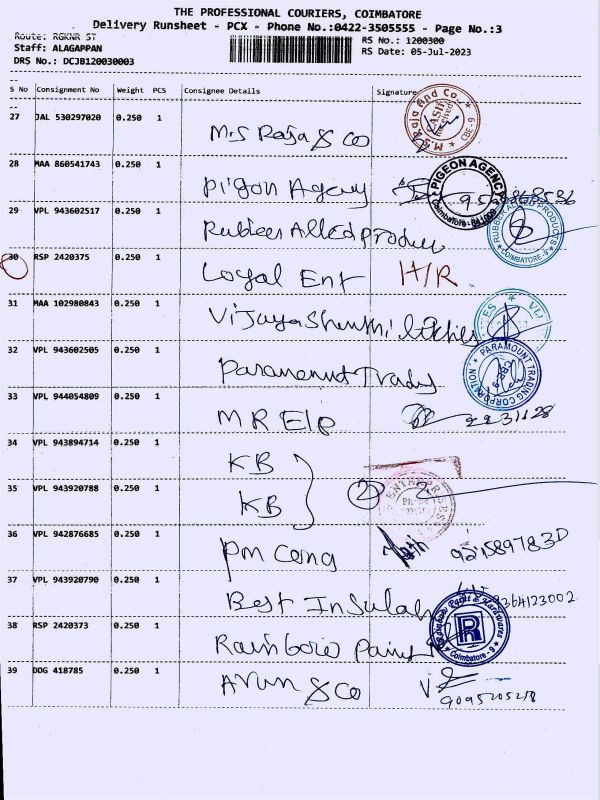 THE PROFESSIONAL COURIERS, COIMBATORE
Delivery Runsheet - PCX - Phone No.:0422-3505555 - Page No.:3
Route: RGKNR ST RS No.: 1200300
Staff: ALAGAPPAN RS Date: 05-Jul-2023
DRS No.: DCJB120030003
S No Consignment No Weight PCS Consignee Details Signature
27 JAL 530297020 0.250 1 M.S Raja & Co
28 MAA 860541743 0.250 1 Pigon Agency
PIGEON AGENCY
29 VPL 943602517 0.250 1 Rubber Allied Produc
RUBBER ALLIED PRODUCTS
COIMBATORE-9
30 RSP 2420375 0.250 1 Loyal Ent H/R
31 MAA 102980843 0.250 1 Vijaya
32 VPL 943602505 0.250 1 Paramount Tradg
PARAMOUNT TRADING CORPORATION
33 VPL 944054809 0.250 1 MR Elp
34 VPL 943894714 0.250 1 KB
35 VPL 943920788 0.250 1 KB 2
36 VPL 942876685 0.250 1 Pm Cong
37 VPL 943920790 0.250 1 Best Insulat 9364123002
38 RSP 2420373 0.250 1 Rainbow Paint
Rainbow Paint & Hardwares
Coimbatore - 9
39 DDG 418785 0.250 1 Arun & Co